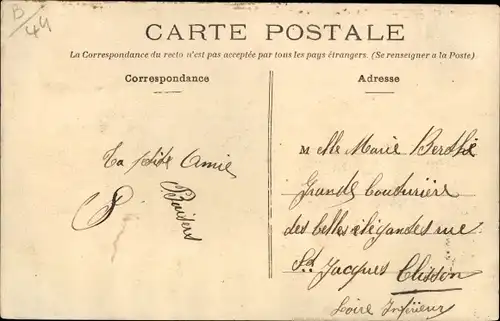 B/44
CARTE POSTALE
La Correspondance du recto n'est pas acceptée par tous les pays étrangers. (Se renseigner a la Poste).
Correspondance
Adresse
Ta ptite Amie
Baisers
Melle Marie Berthe
Grande Couturière
des belles élégandes rue
St Jacques Clisson
Loire Inférieur